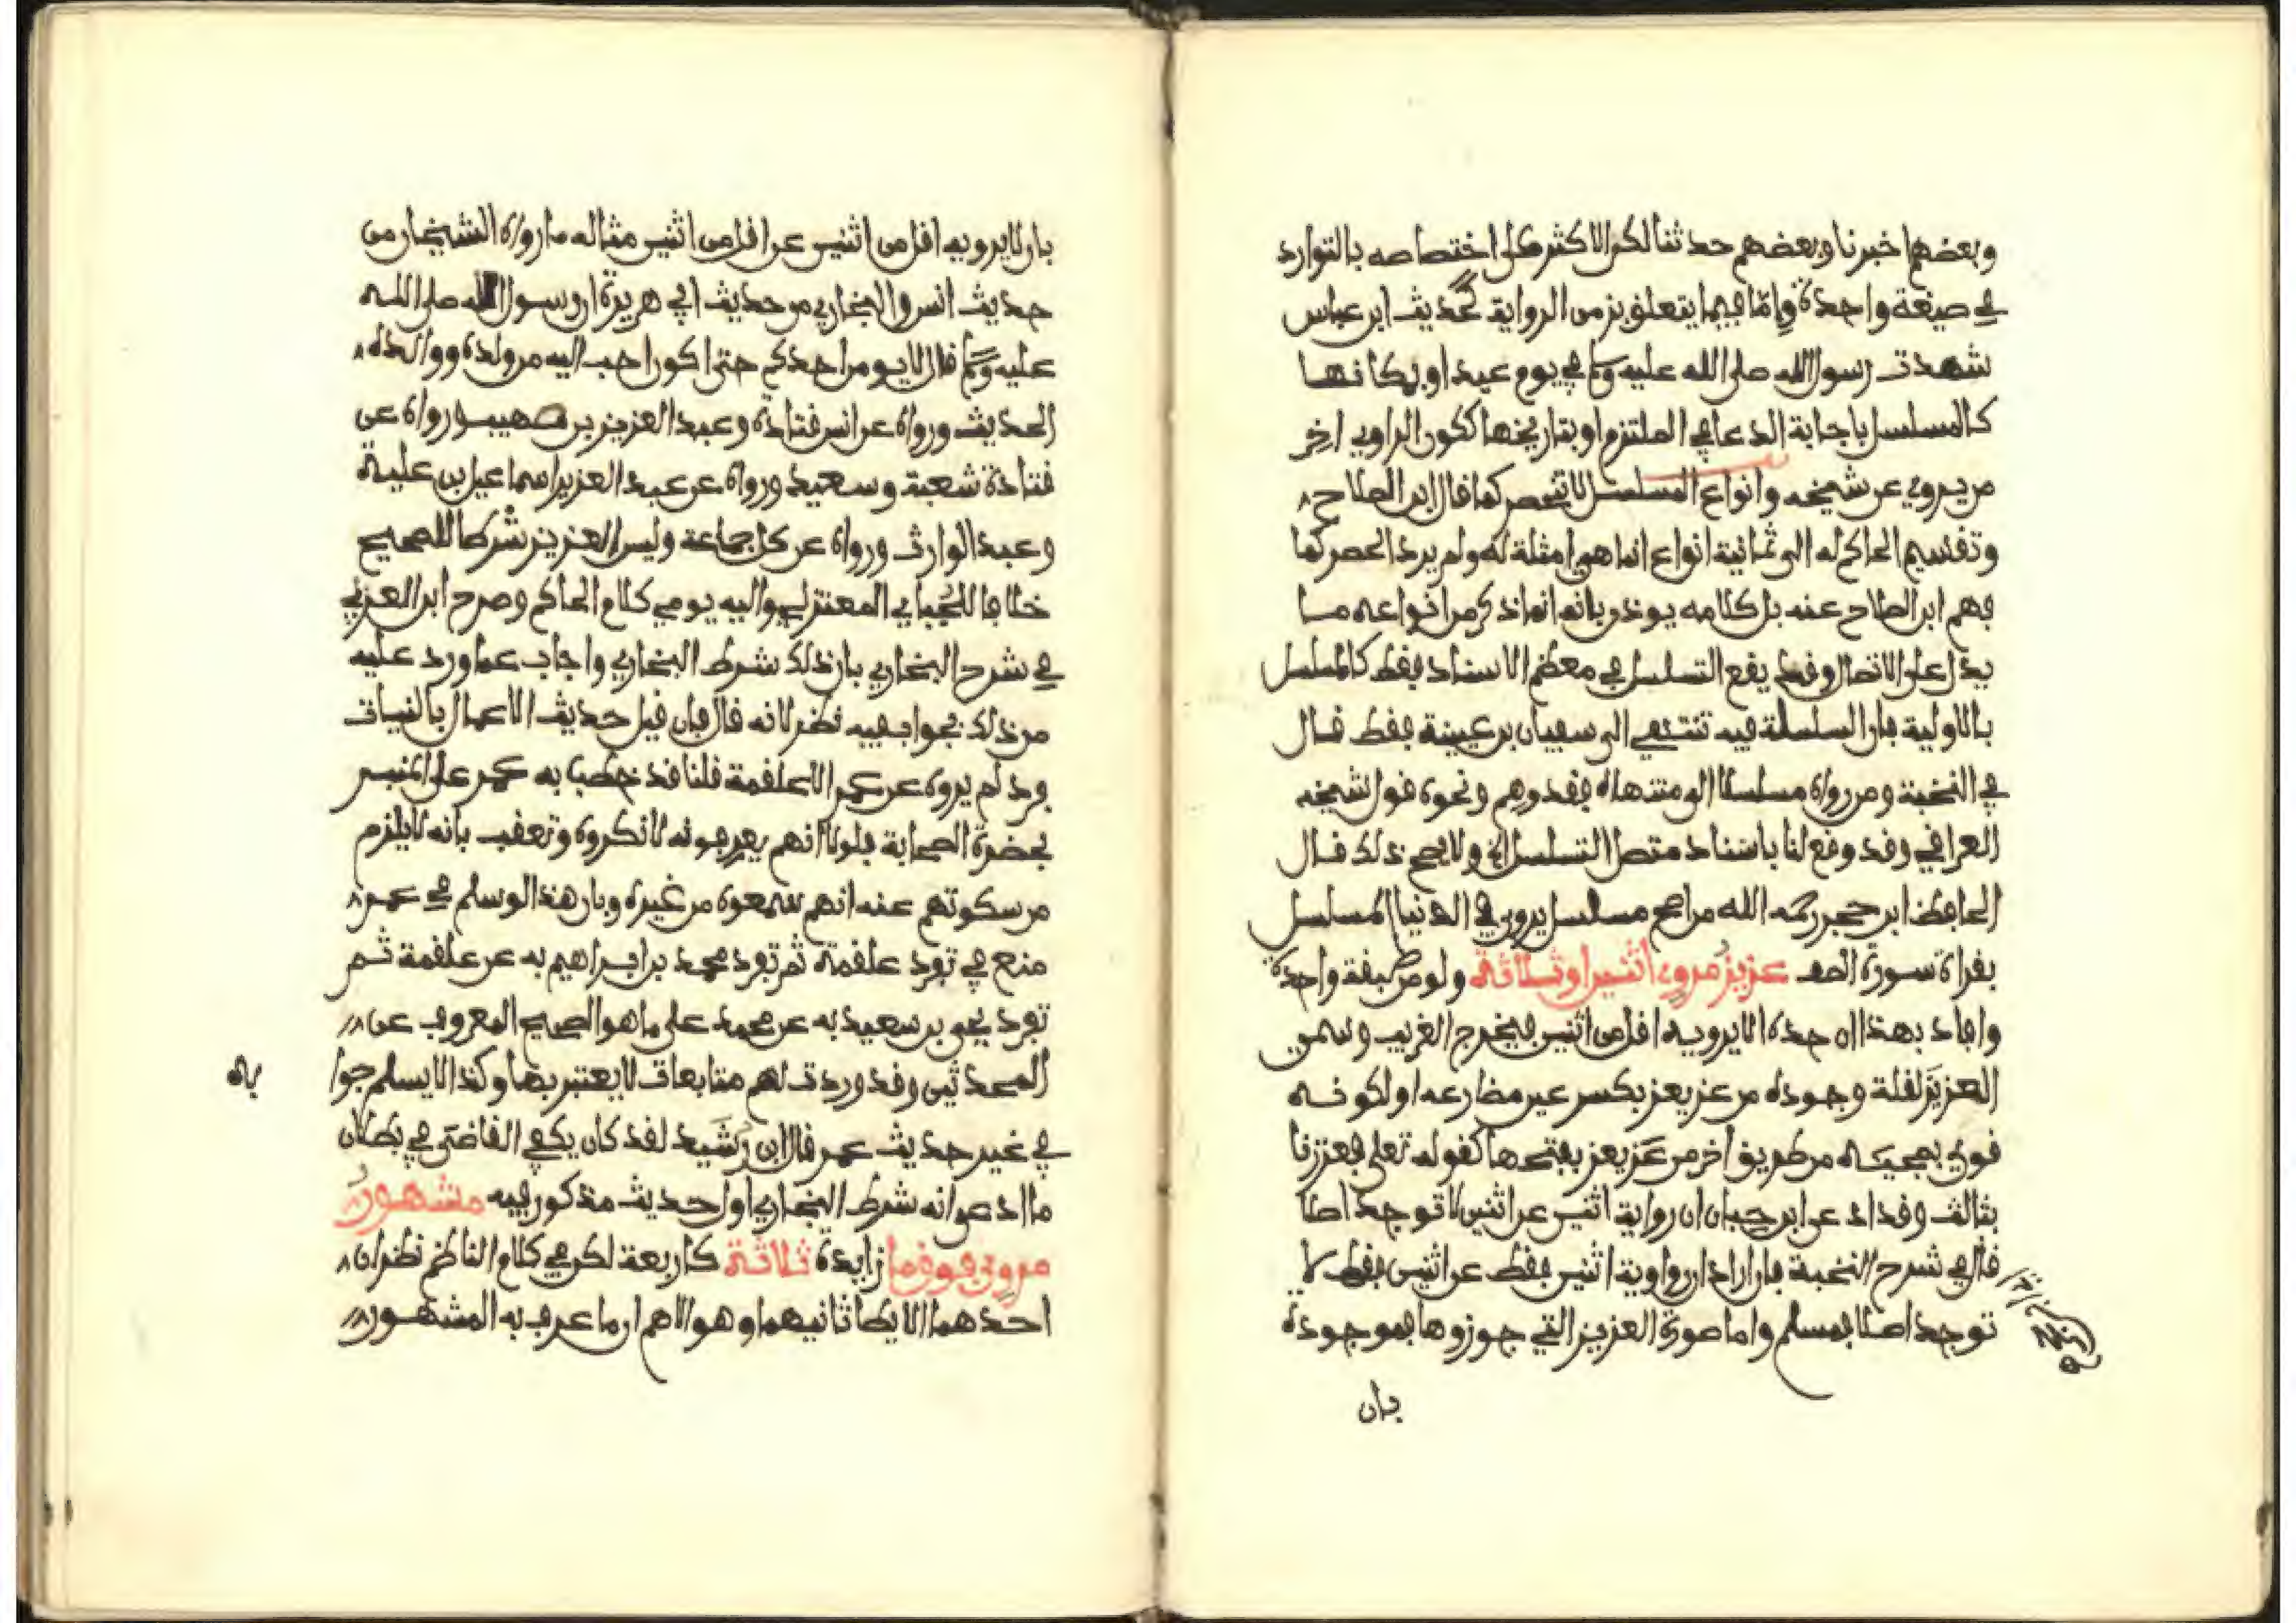 وبعضهم اخبرنا وبعضهم حدثنا لكن الاكثر على اختصاصه بالتوارد
في صيغة واحدة وامّا فيما يتعلق بزمن الرواية كحديث ابن عباس
شهدت رسول الله صلى الله عليه وسلم في يوم عيد او بمكانها
كالمسلسل باجابة الدعا في الملتزم او بتاريخها ككون الراوي اخر
من يروي عن شيخه وانواع المسلسل لا تنحصر كما قال ابن الصلاح
وتقسيم الحاكم له الى ثمانية انواع انما هي امثلة له ولم يرد الحصر كما
فهم ابن الصلاح عنه بل كلامه يوذن بانه انما ذكر من انواعه ما
يدل على الاتصال وقد يقع التسلسل في معظم الاسناد فقط كالمسلسل
بالاولية فان السلسلة فيه تنتهي الى سفيان بن عيينة فقط قال
في النخبة ومن رواه مسلسلا الى منتهاه فقد وهم ونحوه قول شيخه
العراقي وقد وقع لنا باسناد متصل التسلسل ولا يصح ذلك قال
الحافظ ابن حجر رحمه الله من اصح مسلسل يروى في الدنيا المسلسل
بقراة سورة الصف عزيز مروي اثنين او ثلاثة ولو من طبقة واحدة
وافاد بهذا ان حده الا يرويه اقل من اثنين فيخرج الغريب وسمي
العزيز لقلة وجوده من عز يعز بكسر عين مضارعه او لكونه
قوي بمجيئه من طريق اخر من عَز يعز بفتحها كقوله تعلى فعززنا
بثالث وقد اد عن ابن حبان ان رواية اثنين عن اثنين لا توجد اصلا
قال في شرح النخبة فان اراد ان رواية اثنين فقط عن اثنين فقط لا
توجد اصلا فمسلم واما صورة العزيز التي جوزوها فموجودة
بان
بان لا يرويه اقل من اثنين عن اقل من اثنين مثاله ما رواه الشيخان من
حديث انس والبخاري من حديث ابي هريرة ان رسول الله صلى الله
عليه وسلم قال لا يومن احدكم حتى اكون احب اليه من ولده ووالده
الحديث ورواه عن انس قتادة وعبد العزيز بن صهيب ورواه عن
قتادة شعبة وسعيد ورواه عن عبد العزيز اسماعيل بن علية
وعبد الوارث ورواه عن كل جماعة وليس العزيز شرطا للصحيح
خلافا للجُبايي المعتزلي واليه يومي كلام الحاكم وصرح ابن العربي
في شرح البخاري بان ذلك شرط البخاري واجاب عما ورد عليه
من ذلك بجواب فيه نظر لانه قال فان قيل حديث الاعمال بالنيات
فرد لم يروه عن عمر الا علقمة قلنا قد خطب به عمر على المنبر
بحضرة الصحابة فلولا انهم يعرفونه لانكروه وتعقب بانه لا يلزم
من سكوتهم عنه انهم سمعوه من غيره وبان هذا لو سلم في عمر
منع في تفرد علقمة ثم تفرد محمد بن ابراهيم به عن علقمة ثم
تفرد يحيى بن سعيد به عن محمد على ما هو الصحيح المعروف عن
المحدثين وقد وردت لهم متابعات لا يعتبر بها وكذا لا يسلم جوا
به
في غير حديث عمر قال ابن رُشَيد لقد كان يكفي القاضي في بطلان
ما ادعى انه شرط البخاري اول حديث مذكور فيه مشهور
مروي فوق ما زايدة ثلاثة كاربعة لكن في كلام الناظم نظران
احدهما الايطا ثانيهما وهو الاهم ان ما عرف به المشهور